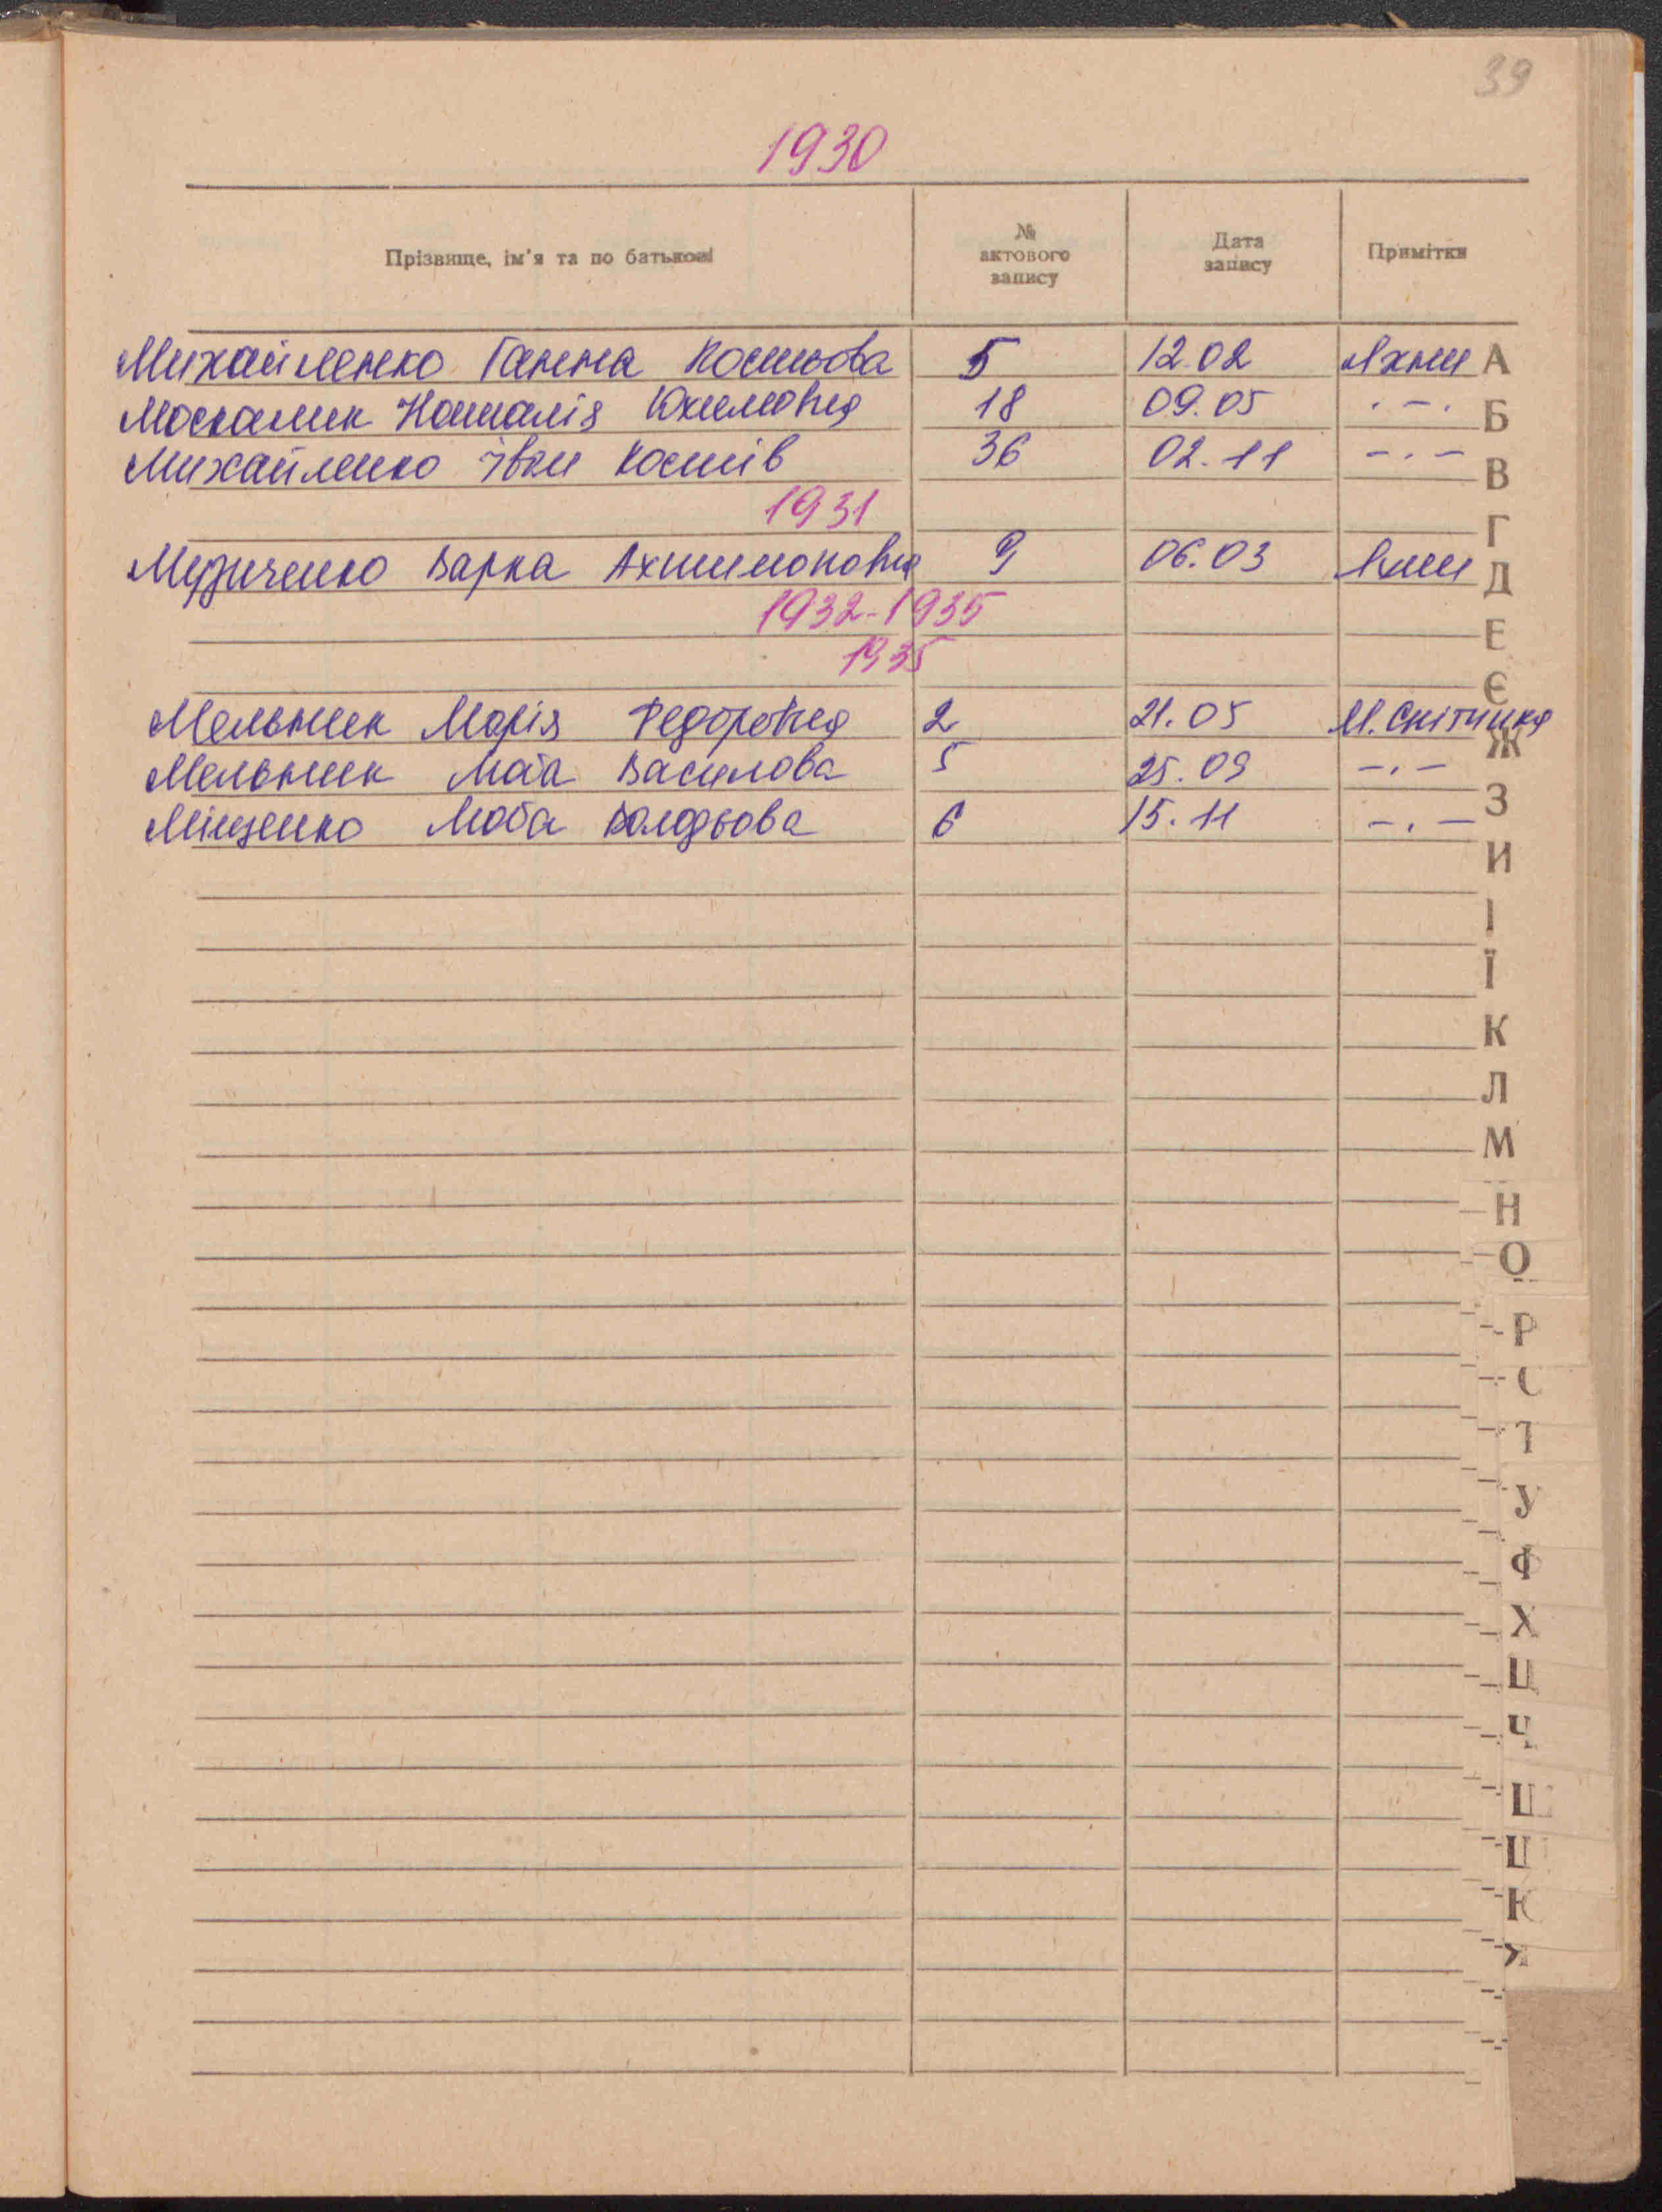 39
1930
Прізвище, ім'я та по батькові № актового запису Дата запису Примітки
Михайленко Ганна Костьова 5 12.02 Яхни
Москалик Наталія Юхимовна 18 09.05 . – .
Михайленко Іван Костів 36 02.11 – . –
1931
Мудиченко Варка Ахтимоновна 9 06.03 Яхни
1932-1935
1935
Мельник Марія Федоровна 2 21.05 М. Снітинка
Мельник Мая Василова 5 25.09 – . –
Міщенко Люба Володьова 6 15.11 – . –
А
Б
В
Г
Д
Е
Є
Ж
З
И
І
Ї
К
Л
М
Н
О
Р
С
Т
У
Ф
Х
Ц
Ч
Ш